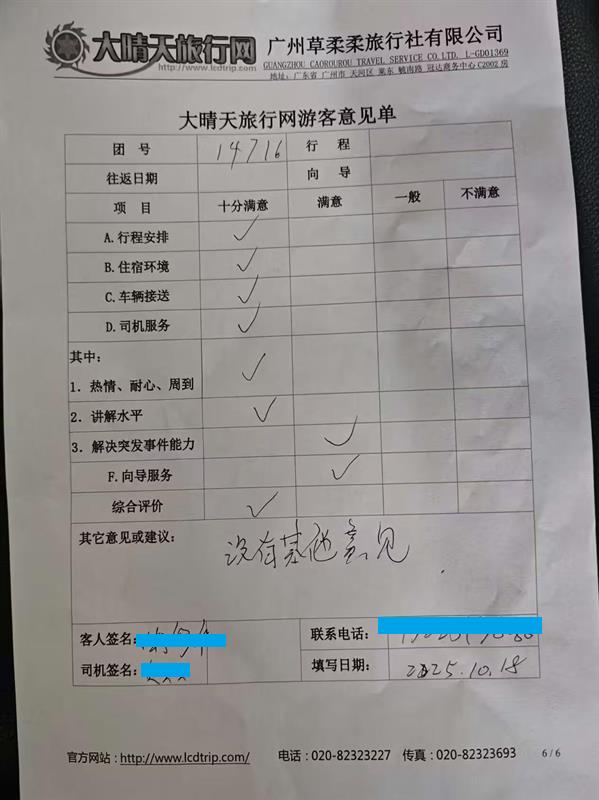 大晴天旅行网
http://www.lcdtrip.com
广州草柔柔旅行社有限公司
GUANGZHOU CAOROUROU TRAVEL SERVICE CO.LTD. L-GD01369
地址：广东省 广州市 天河区 棠东 毓南路 冠达商务中心C2002房
大晴天旅行网游客意见单
团 号 14716 行 程
往返日期 向 导
项 目 十分满意 满意 一般 不满意
A.行程安排 ✓
B.住宿环境 ✓
C.车辆接送 ✓
D.司机服务 ✓
其中：
1. 热情、耐心、周到 ✓
2. 讲解水平 ✓
3. 解决突发事件能力 ✓
F.向导服务 ✓
综合评价 ✓
其它意见或建议：
没有其他意见
客人签名： 联系电话：
司机签名： 填写日期： 2025.10.18
官方网站：http://www.lcdtrip.com/ 电话：020-82323227 传真：020-82323693 6 / 6